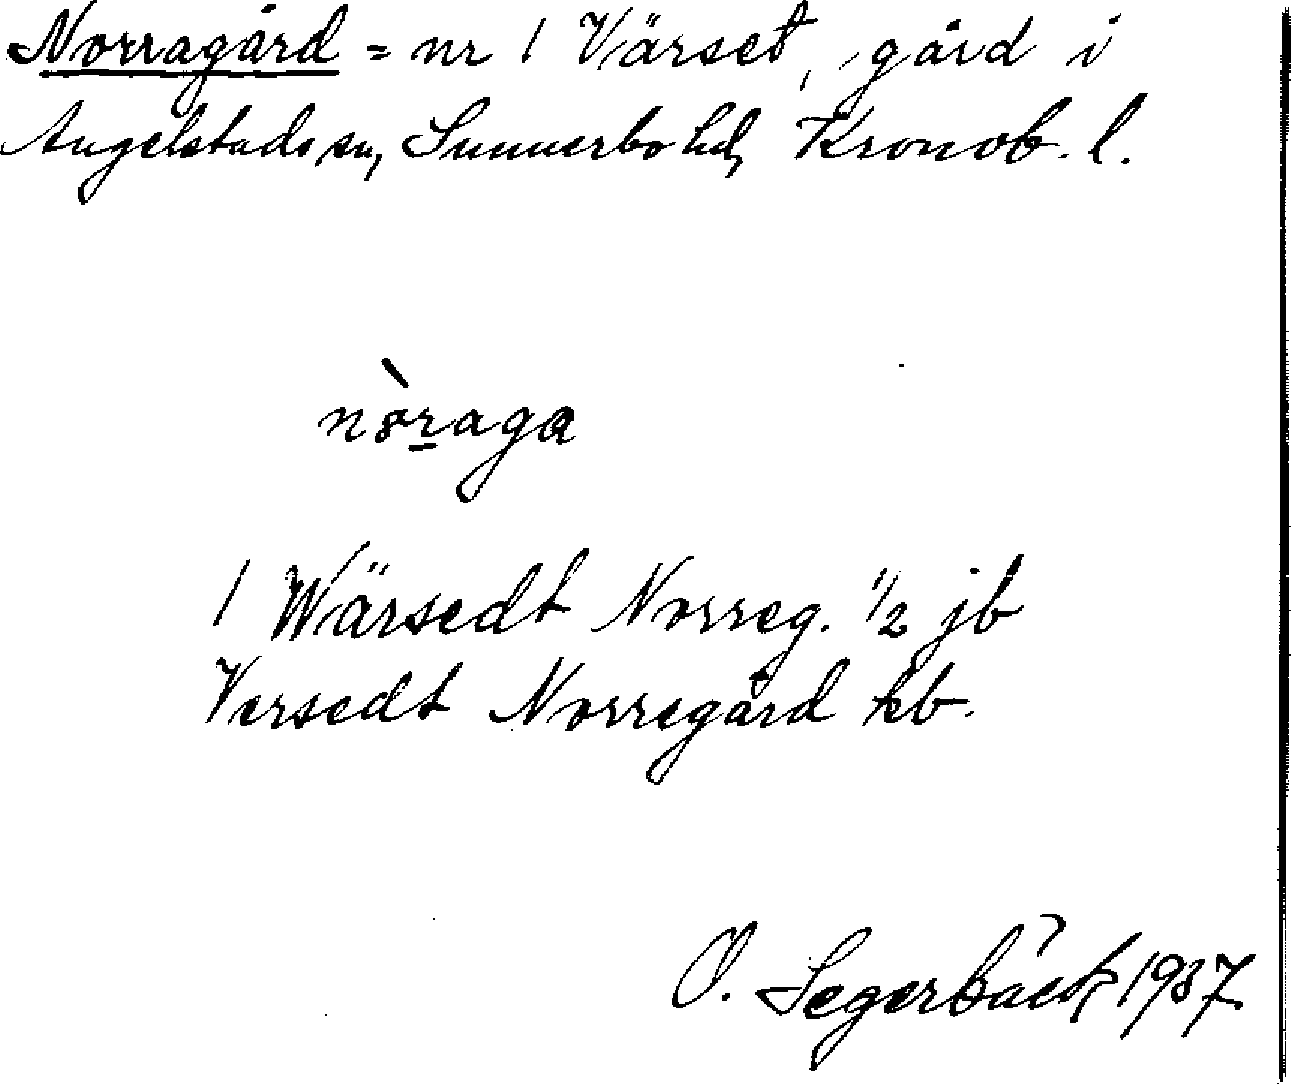 Norragård = nr 1 Värset, gård i
Angelstads sn, Sunnerbo hd, Kronob. l.
nòraga
1 Wärsedt Norreg. 1/2 jb
Versedt Norregård hb.
O. Segerbäck 1937